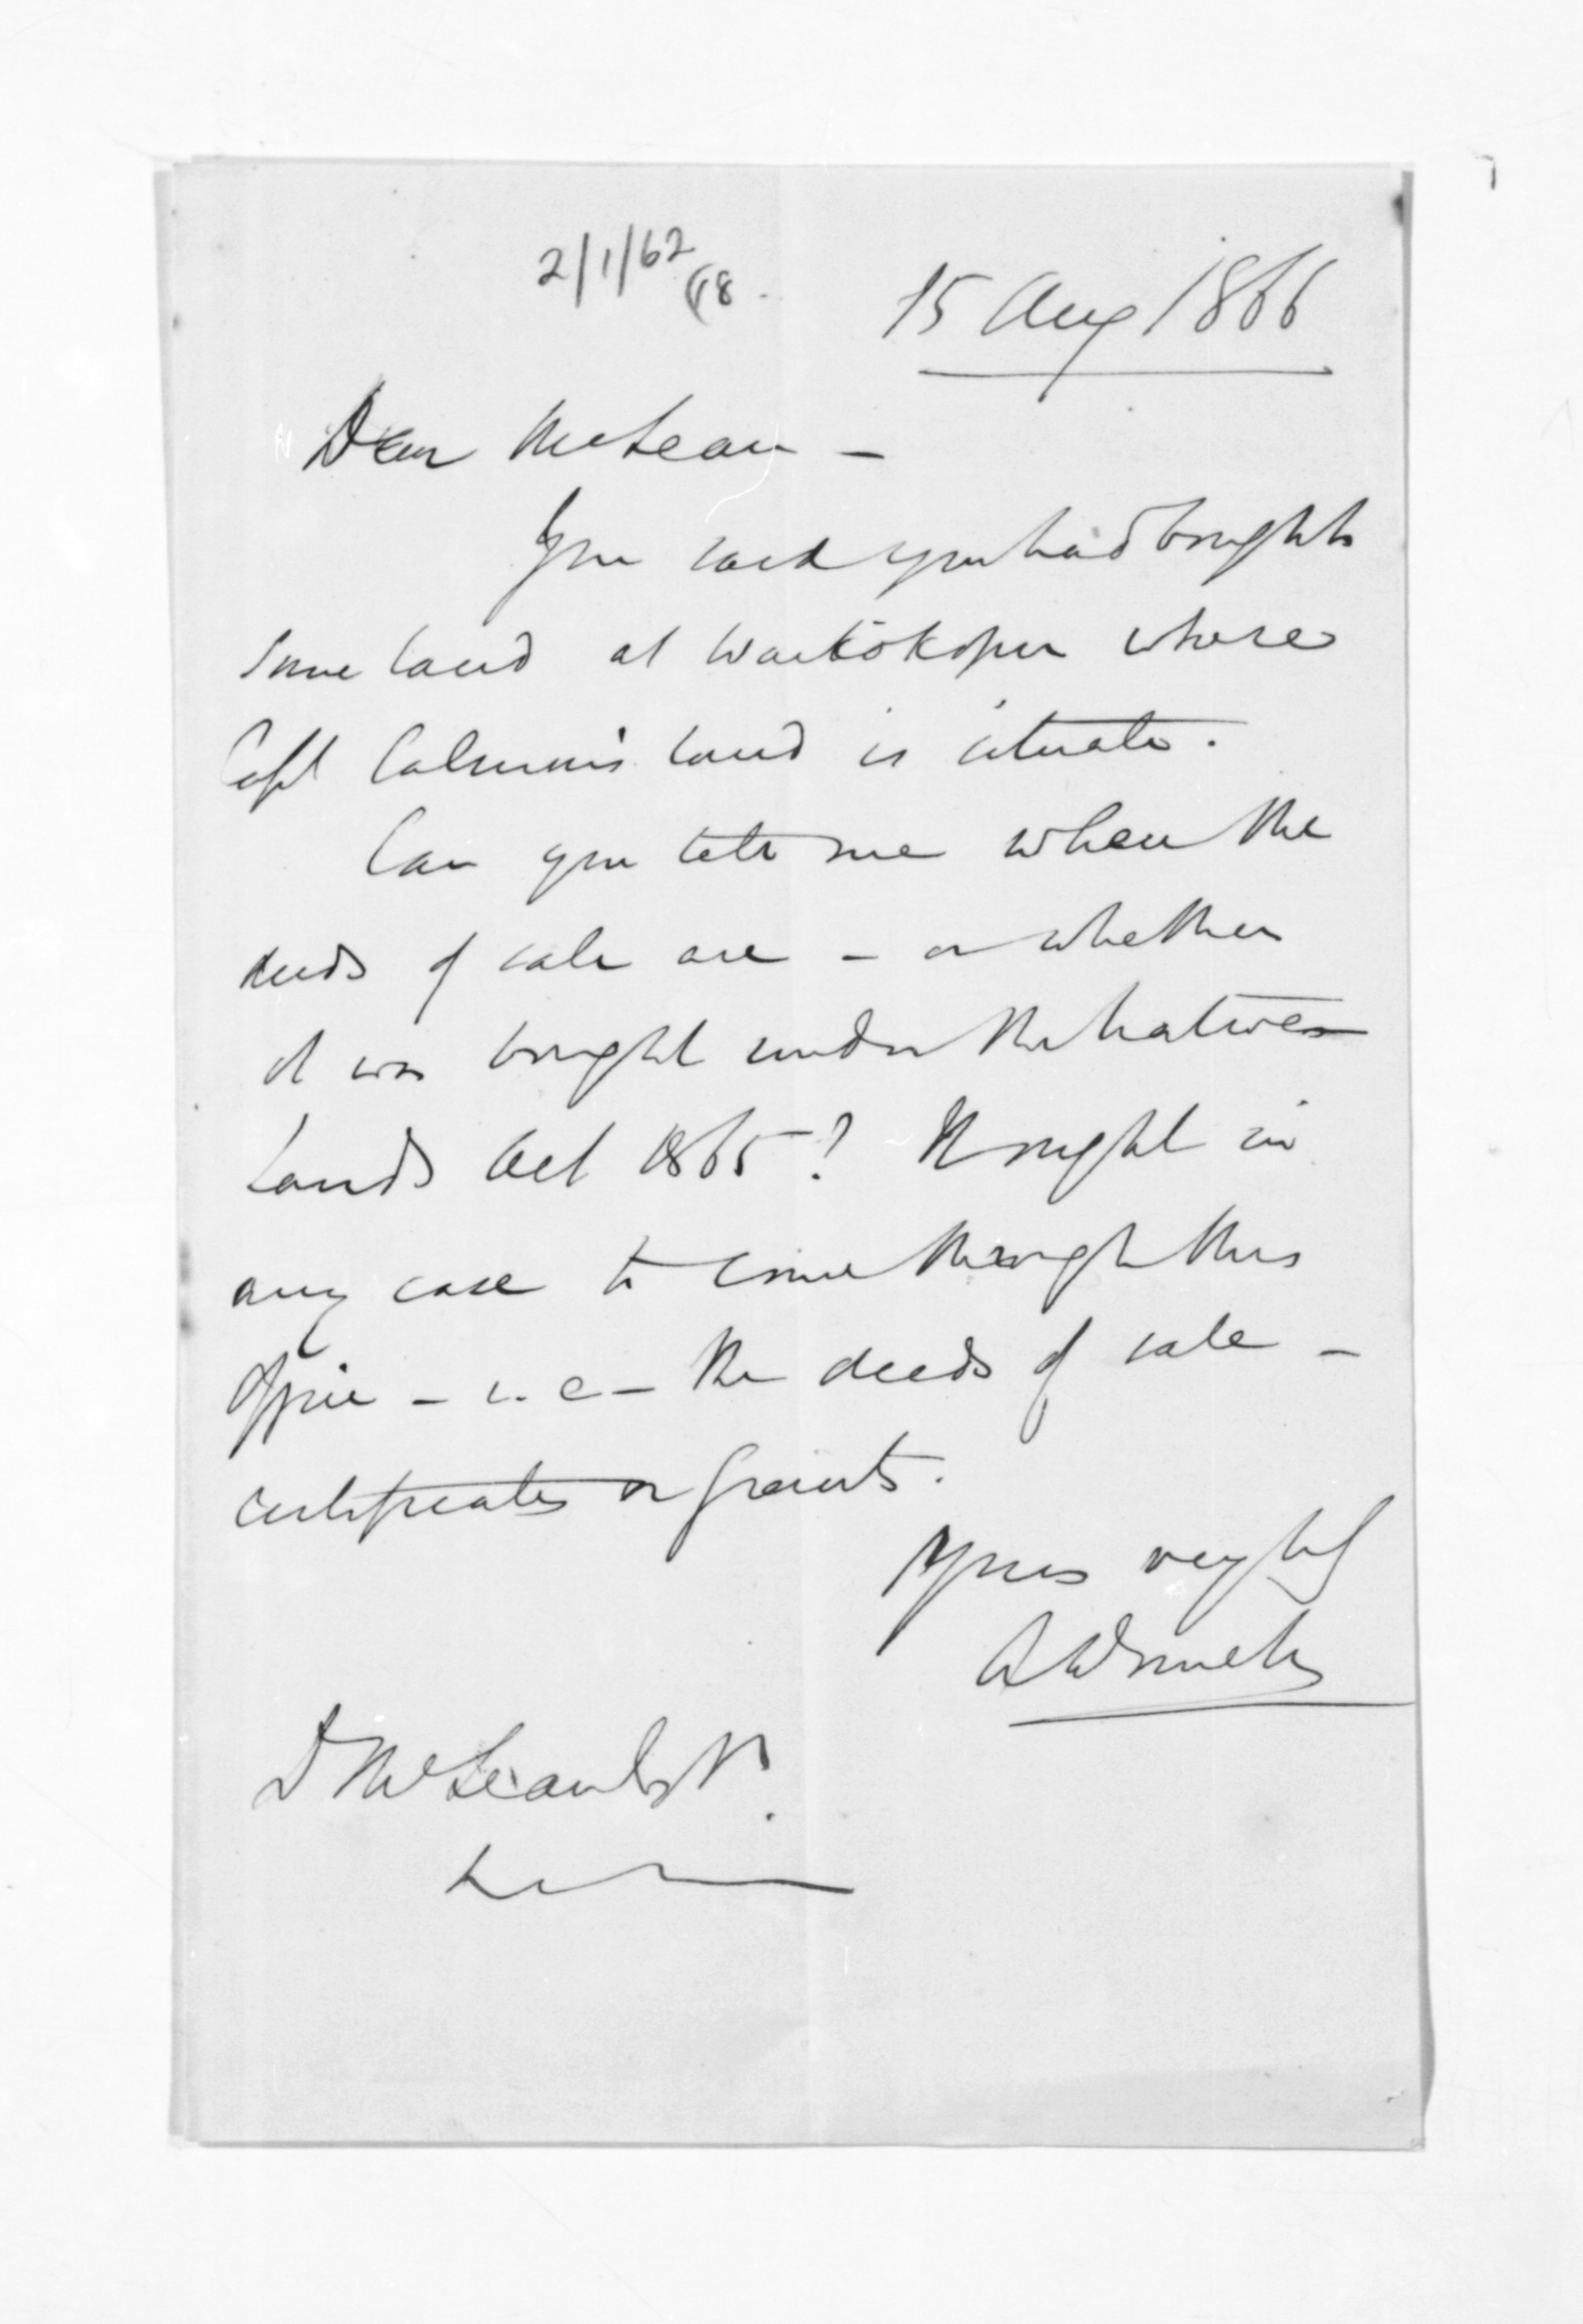 2/1/62
(18.
15 Aug 1866
Dear McLean -
You said you had bought
some land at Waikokopu where
Capt Calmin's land is situate.
Can you tell me when the
deeds of sale are - or whether
it was bought under the Natives
Lands Act 1865? It ought in
any case to come through this
Office - i.e - the deeds of sale -
certificates or grants.
Yours very
A Domett
D McLean Esqr.